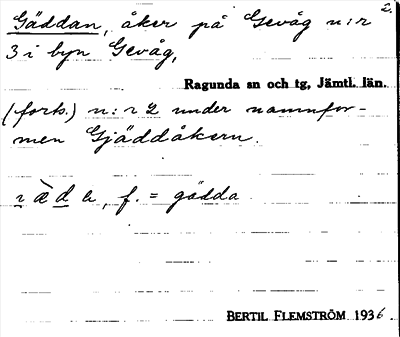 2.
Gäddan, åker på Gevåg n:r
3 i byn Gevåg,
Ragunda sn och tg, Jämtl. län.
(forts.) n:r 2 under namnfor-
men Gjäddåkern.
f. = gädda
BERTIL FLEMSTRÖM 1936.